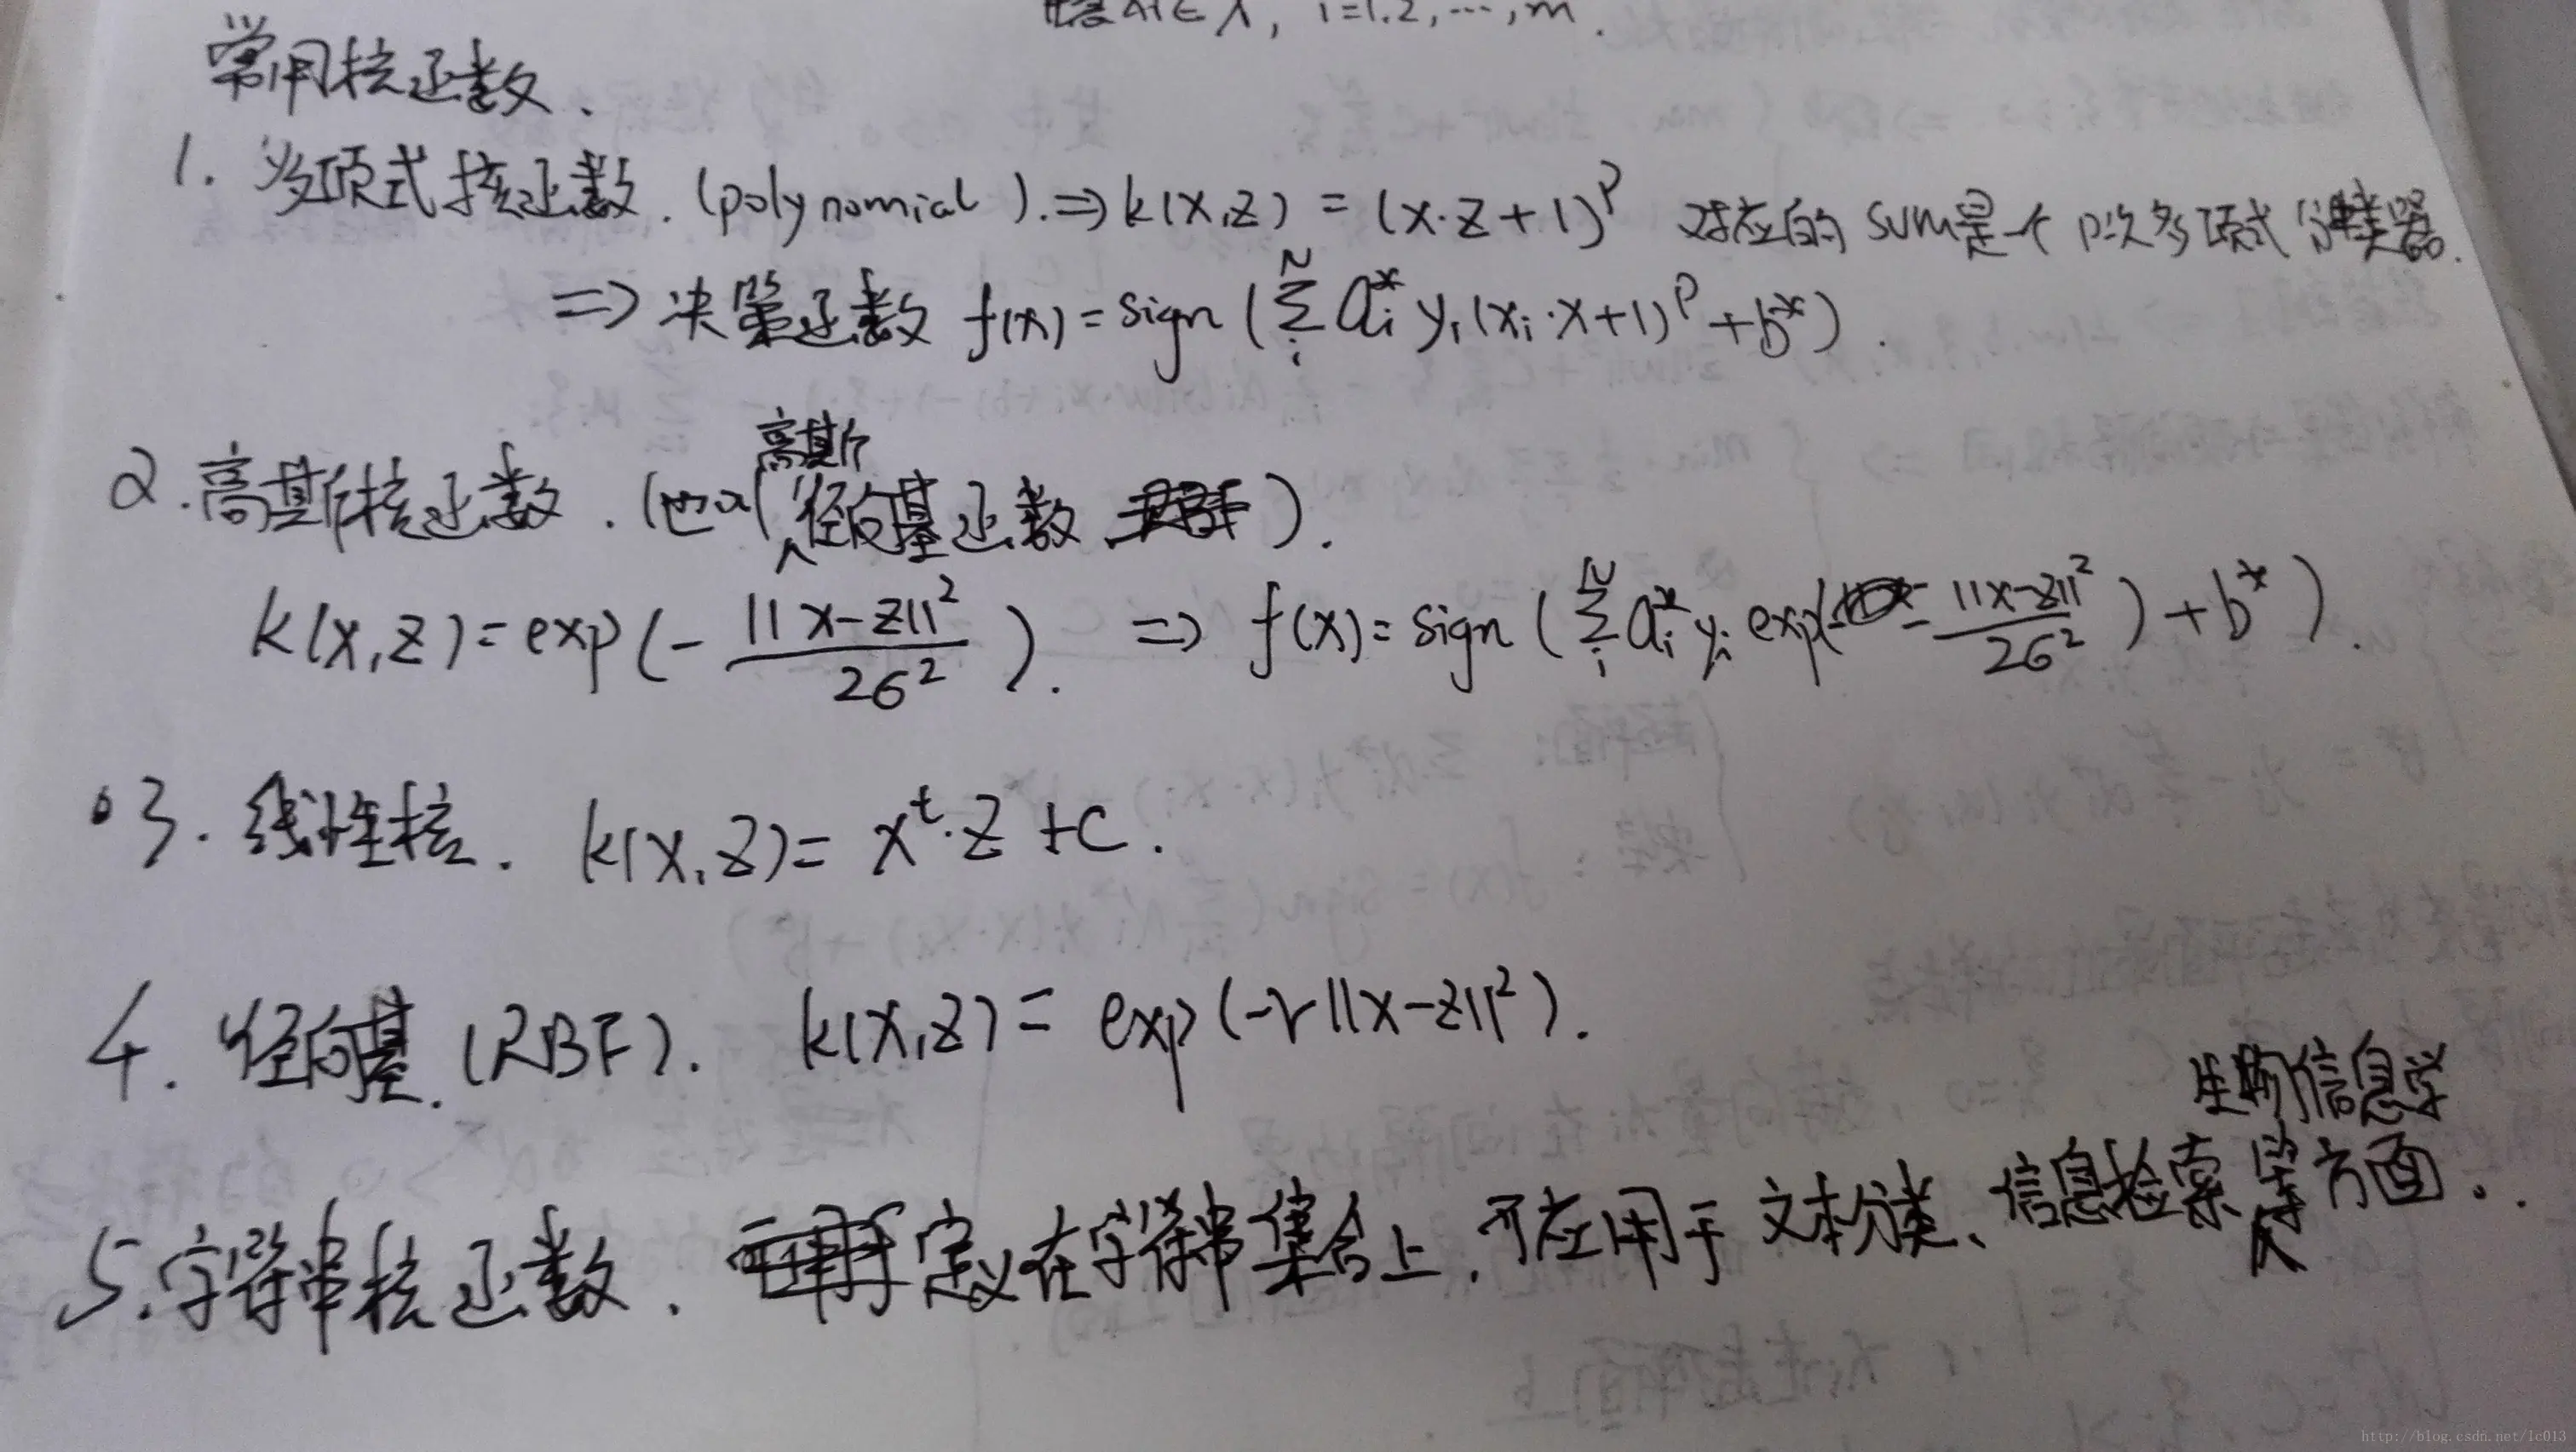 Xi∈X, i=1.2,…,m.
常用核函数.
1. 多项式核函数.(polynomial).⇒k(x,z)=(x·z+1)^p 对应的SVM是一个p次多项式分类器.
⇒决策函数 f(x)=sign(∑_i^N a_i^* y_i(x_i·x+1)^p+b^*).
2.高斯核函数.(也叫高斯径向基函数).
k(x,z)=exp(-||x-z||²/2σ²). ⇒ f(x)=sign(∑_i^N a_i^* y_i exp(-||x-z||²/2σ²)+b^*).
3.线性核. k(x,z)=x^t·z+c.
4.径向基.(RBF). k(x,z)=exp(-r||x-z||²).
5.字符串核函数. 定义在字符串集合上,可应用于文本分类、信息检索、生物信息学等方面.
http://blog.csdn.net/lc013